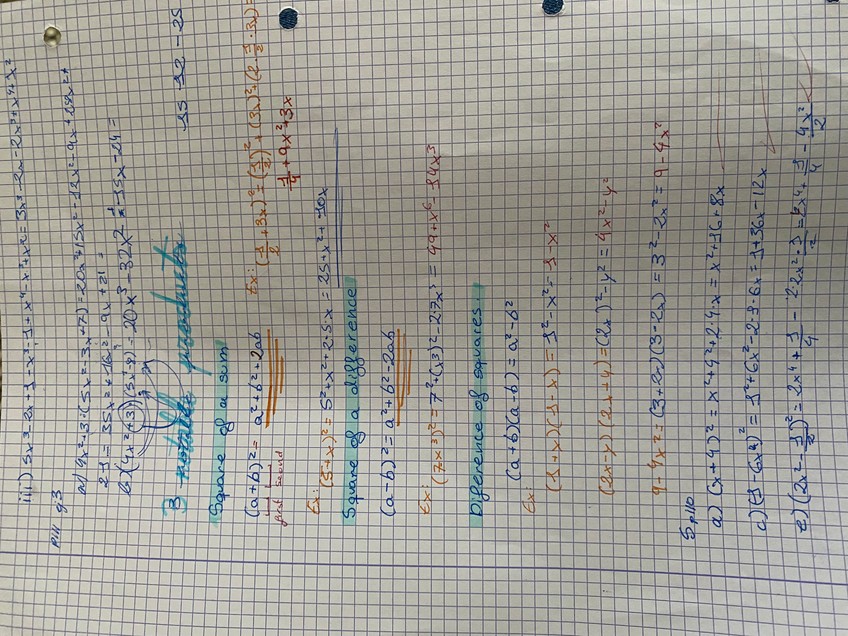 iii) 5x³-2x+1-x³-1+x⁴-x³+x²=3x³-2x-2x³+x⁴+x²
P111 g3
a) 4x²+3·(5x²-3x+7)=20x⁴+15x²-12x²-9x+28x²+
21=35x²+16x²-9x+21=
b) (4x²+3)(5x-8)=20x³-32x²+15x-24=
3 notable products
15 32 -25
Square of a sum
(a+b)²= a²+b²+2ab
first second
Ex: (1/2+3x)²=(1/2)²+(3x)²+(2·1/2·3x)=
1/4+9x²+3x
Ex: (5+x)²=5²+x²+2·5·x=25+x²+10x
Square of a difference
(a-b)²=a²+b²-2ab
Ex: (7-x³)²=7²+(x³)²-2·7x³=49+x⁶-14x³
Diference of squares.
(a+b)(a-b)=a²-b²
Ex:
(1+x)(1-x)=1²-x²=1-x²
(2x-y)(2x+y)=(2x)²-y²=4x²-y²
9-4x²=(3+2x)(3-2x)=3²-2x²=9-4x²
5 p110
a) (x+4)²=x²+4²+2·4·x=x²+16+8x
c) (1-6x)²=1²+6x²-2·1·6x=1+36x-12x
e) (2x²-1/2)²=2x⁴+1/4-2·2x²·1/2=2x⁴+1/4-4x²/2